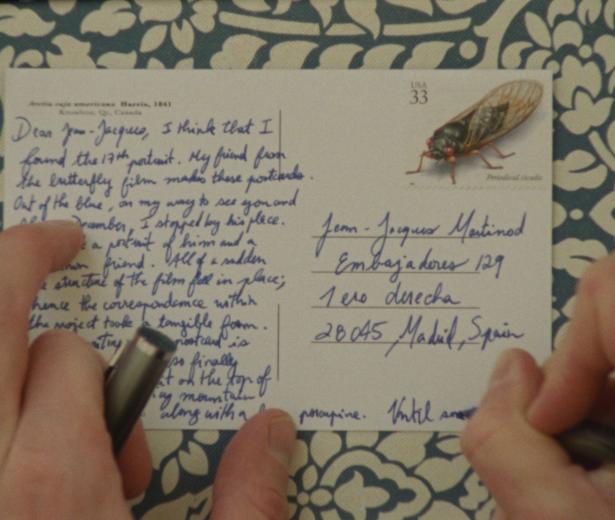 Arctia caja americana Harris, 1841
Knowlton, Qc, Canada
USA
33
Periodical cicada
Dear Jean-Jacques, I think that I
found the 17th portrait. My friend from
the butterfly film makes these postcards.
Out of the blue, on my way to see you and
December, I stopped by his place.
a portrait of him and a
friend. All of a sudden
structure of the film fell in place;
hence the correspondence within
the project took a tangible form.
postcard is
so finally
on the top of
mountain
along with a porcupine. Until
Jean-Jacques Martinod
Embajadores 129
1ero derecha
28045, Madrid, Spain